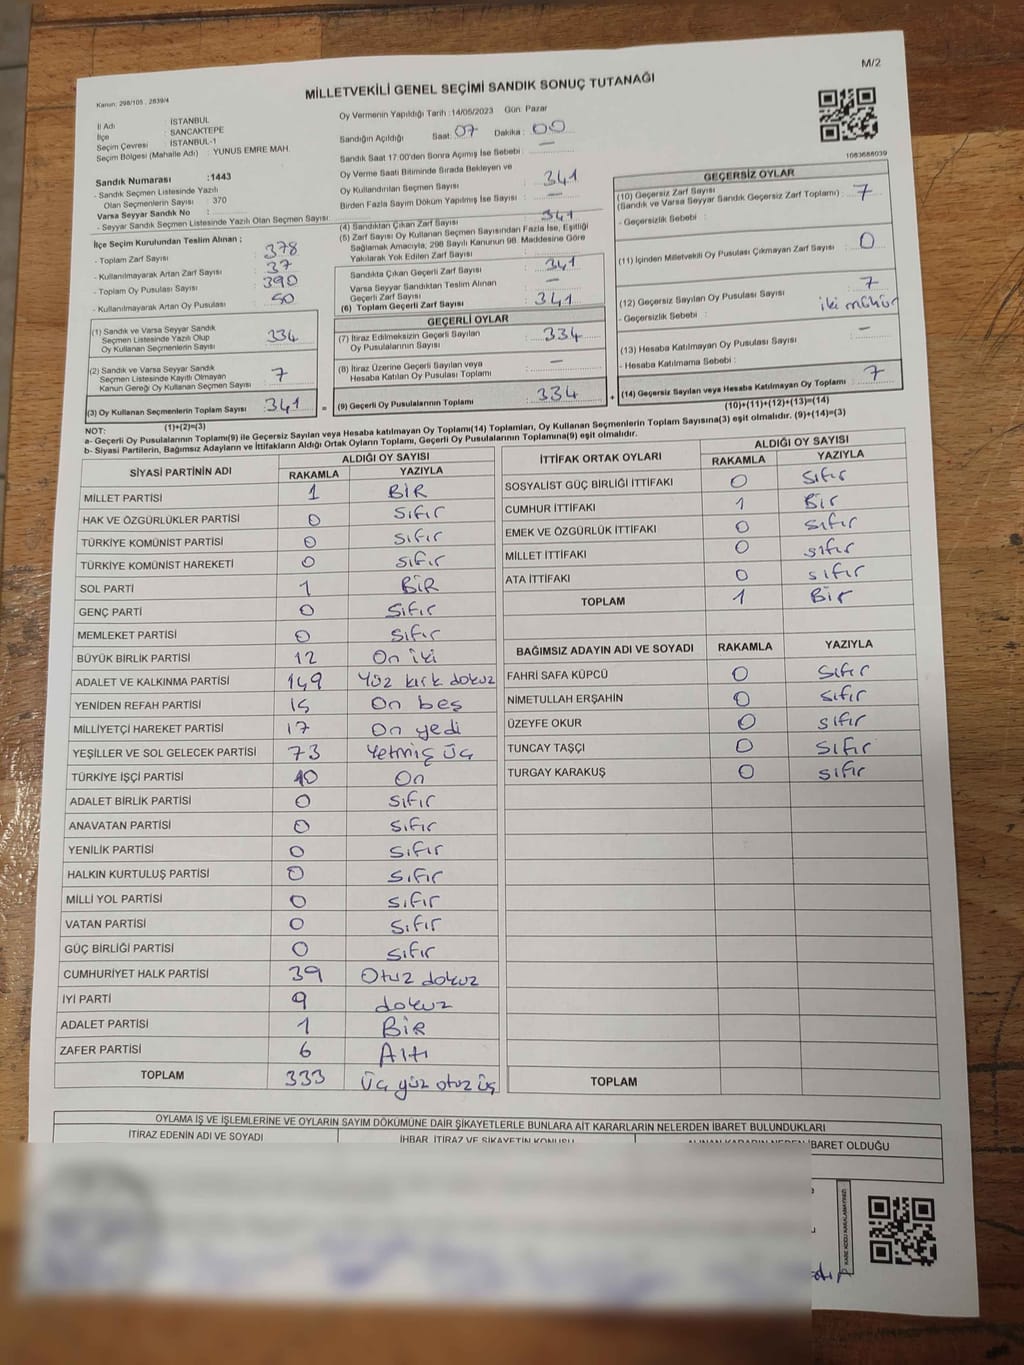 M/2
MİLLETVEKİLİ GENEL SEÇİMİ SANDIK SONUÇ TUTANAĞI
Kanun: 298/105 , 2839/4
İl Adı : İSTANBUL
İlçe : SANCAKTEPE
Seçim Çevresi : İSTANBUL-1
Seçim Bölgesi (Mahalle Adı) : YUNUS EMRE MAH.
Sandık Numarası :1443
- Sandık Seçmen Listesinde Yazılı
Olan Seçmenlerin Sayısı : 370
Varsa Seyyar Sandık No :
- Seyyar Sandık Seçmen Listesinde Yazılı Olan Seçmen Sayısı:
İlçe Seçim Kurulundan Teslim Alınan ;
- Toplam Zarf Sayısı : 378
- Kullanılmayarak Artan Zarf Sayısı : 37
- Toplam Oy Pusulası Sayısı : 390
- Kullanılmayarak Artan Oy Pusulası : 50
(1) Sandık ve Varsa Seyyar Sandık
Seçmen Listesinde Yazılı Olup
Oy Kullanan Seçmenlerin Sayısı 334
(2) Sandık ve Varsa Seyyar Sandık
Seçmen Listesinde Kayıtlı Olmayan
Kanun Gereği Oy Kullanan Seçmen Sayısı 7
(3) Oy Kullanan Seçmenlerin Toplam Sayısı : 341
(1)+(2)=(3)
Oy Vermenin Yapıldığı Tarih :14/05/2023 Gün: Pazar
Sandığın Açıldığı Saat: 07 Dakika : 00
Sandık Saat 17:00'den Sonra Açımış İse Sebebi : —
Oy Verme Saati Bitiminde Sırada Bekleyen ve
Oy Kullandırılan Seçmen Sayısı : 341
Birden Fazla Sayım Döküm Yapılmış İse Sayısı : —
(4) Sandıktan Çıkan Zarf Sayısı : 341
(5) Zarf Sayısı Oy Kullanan Seçmen Sayısından Fazla İse, Eşitliği
Sağlamak Amacıyla, 298 Sayılı Kanunun 98. Maddesine Göre
Yakılarak Yok Edilen Zarf Sayısı : —
Sandıkta Çıkan Geçerli Zarf Sayısı : 341
Varsa Seyyar Sandıktan Teslim Alınan
Geçerli Zarf Sayısı : —
(6) Toplam Geçerli Zarf Sayısı : 341
GEÇERLİ OYLAR
(7) İtiraz Edilmeksizin Geçerli Sayılan
Oy Pusulalarının Sayısı : 334
(8) İtiraz Üzerine Geçerli Sayılan veya
Hesaba Katılan Oy Pusulası Toplamı : —
= (9) Geçerli Oy Pusulalarının Toplamı : 334
1083688039
GEÇERSİZ OYLAR
(10) Geçersiz Zarf Sayısı
(Sandık ve Varsa Seyyar Sandık Geçersiz Zarf Toplamı) : 7
- Geçersizlik Sebebi :
(11) İçinden Milletvekili Oy Pusulası Çıkmayan Zarf Sayısı : 0
(12) Geçersiz Sayılan Oy Pusulası Sayısı : 7
- Geçersizlik Sebebi : iki mühür
(13) Hesaba Katılmayan Oy Pusulası Sayısı : —
- Hesaba Katılmama Sebebi :
+ (14) Geçersiz Sayılan veya Hesaba Katılmayan Oy Toplamı : 7
(10)+(11)+(12)+(13)=(14)
NOT:
a- Geçerli Oy Pusulalarının Toplamı(9) ile Geçersiz Sayılan veya Hesaba Katılmayan Oy Toplamı(14) Toplamları, Oy Kullanan Seçmenlerin Toplam Sayısına(3) eşit olmalıdır. (9)+(14)=(3)
b- Siyasi Partilerin, Bağımsız Adayların ve İttifakların Aldığı Ortak Oyların Toplamı, Geçerli Oy Pusulalarının Toplamına(9) eşit olmalıdır.
SİYASİ PARTİNİN ADI ALDIĞI OY SAYISI
RAKAMLA YAZIYLA
MİLLET PARTİSİ 1 BİR
HAK VE ÖZGÜRLÜKLER PARTİSİ 0 sıfır
TÜRKİYE KOMÜNİST PARTİSİ 0 sıfır
TÜRKİYE KOMÜNİST HAREKETİ 0 sıfır
SOL PARTİ 1 BİR
GENÇ PARTİ 0 sıfır
MEMLEKET PARTİSİ 0 sıfır
BÜYÜK BİRLİK PARTİSİ 12 On iki
ADALET VE KALKINMA PARTİSİ 149 Yüz kırk dokuz
YENİDEN REFAH PARTİSİ 15 On beş
MİLLİYETÇİ HAREKET PARTİSİ 17 On yedi
YEŞİLLER VE SOL GELECEK PARTİSİ 73 Yetmiş üç
TÜRKİYE İŞÇİ PARTİSİ 10 On
ADALET BİRLİK PARTİSİ 0 sıfır
ANAVATAN PARTİSİ 0 sıfır
YENİLİK PARTİSİ 0 sıfır
HALKIN KURTULUŞ PARTİSİ 0 sıfır
MİLLİ YOL PARTİSİ 0 sıfır
VATAN PARTİSİ 0 sıfır
GÜÇ BİRLİĞİ PARTİSİ 0 sıfır
CUMHURİYET HALK PARTİSİ 39 Otuz dokuz
İYİ PARTİ 9 dokuz
ADALET PARTİSİ 1 BİR
ZAFER PARTİSİ 6 Altı
TOPLAM 333 Üç yüz otuz üç
İTTİFAK ORTAK OYLARI ALDIĞI OY SAYISI
RAKAMLA YAZIYLA
SOSYALİST GÜÇ BİRLİĞİ İTTİFAKI 0 sıfır
CUMHUR İTTİFAKI 1 Bir
EMEK VE ÖZGÜRLÜK İTTİFAKI 0 sıfır
MİLLET İTTİFAKI 0 sıfır
ATA İTTİFAKI 0 sıfır
TOPLAM 1 Bir
BAĞIMSIZ ADAYIN ADI VE SOYADI RAKAMLA YAZIYLA
FAHRİ SAFA KÜPCÜ 0 sıfır
NİMETULLAH ERŞAHİN 0 sıfır
ÜZEYFE OKUR 0 sıfır
TUNCAY TAŞÇI 0 sıfır
TURGAY KARAKUŞ 0 sıfır
TOPLAM
OYLAMA İŞ VE İŞLEMLERİNE VE OYLARIN SAYIM DÖKÜMÜNE DAİR ŞİKAYETLERLE BUNLARA AİT KARARLARIN NELERDEN İBARET BULUNDUKLARI
İTİRAZ EDENİN ADI VE SOYADI İHBAR, İTİRAZ VE ŞİKAYETİN KONUSU ALINAN KARARIN NEDEN İBARET OLDUĞU